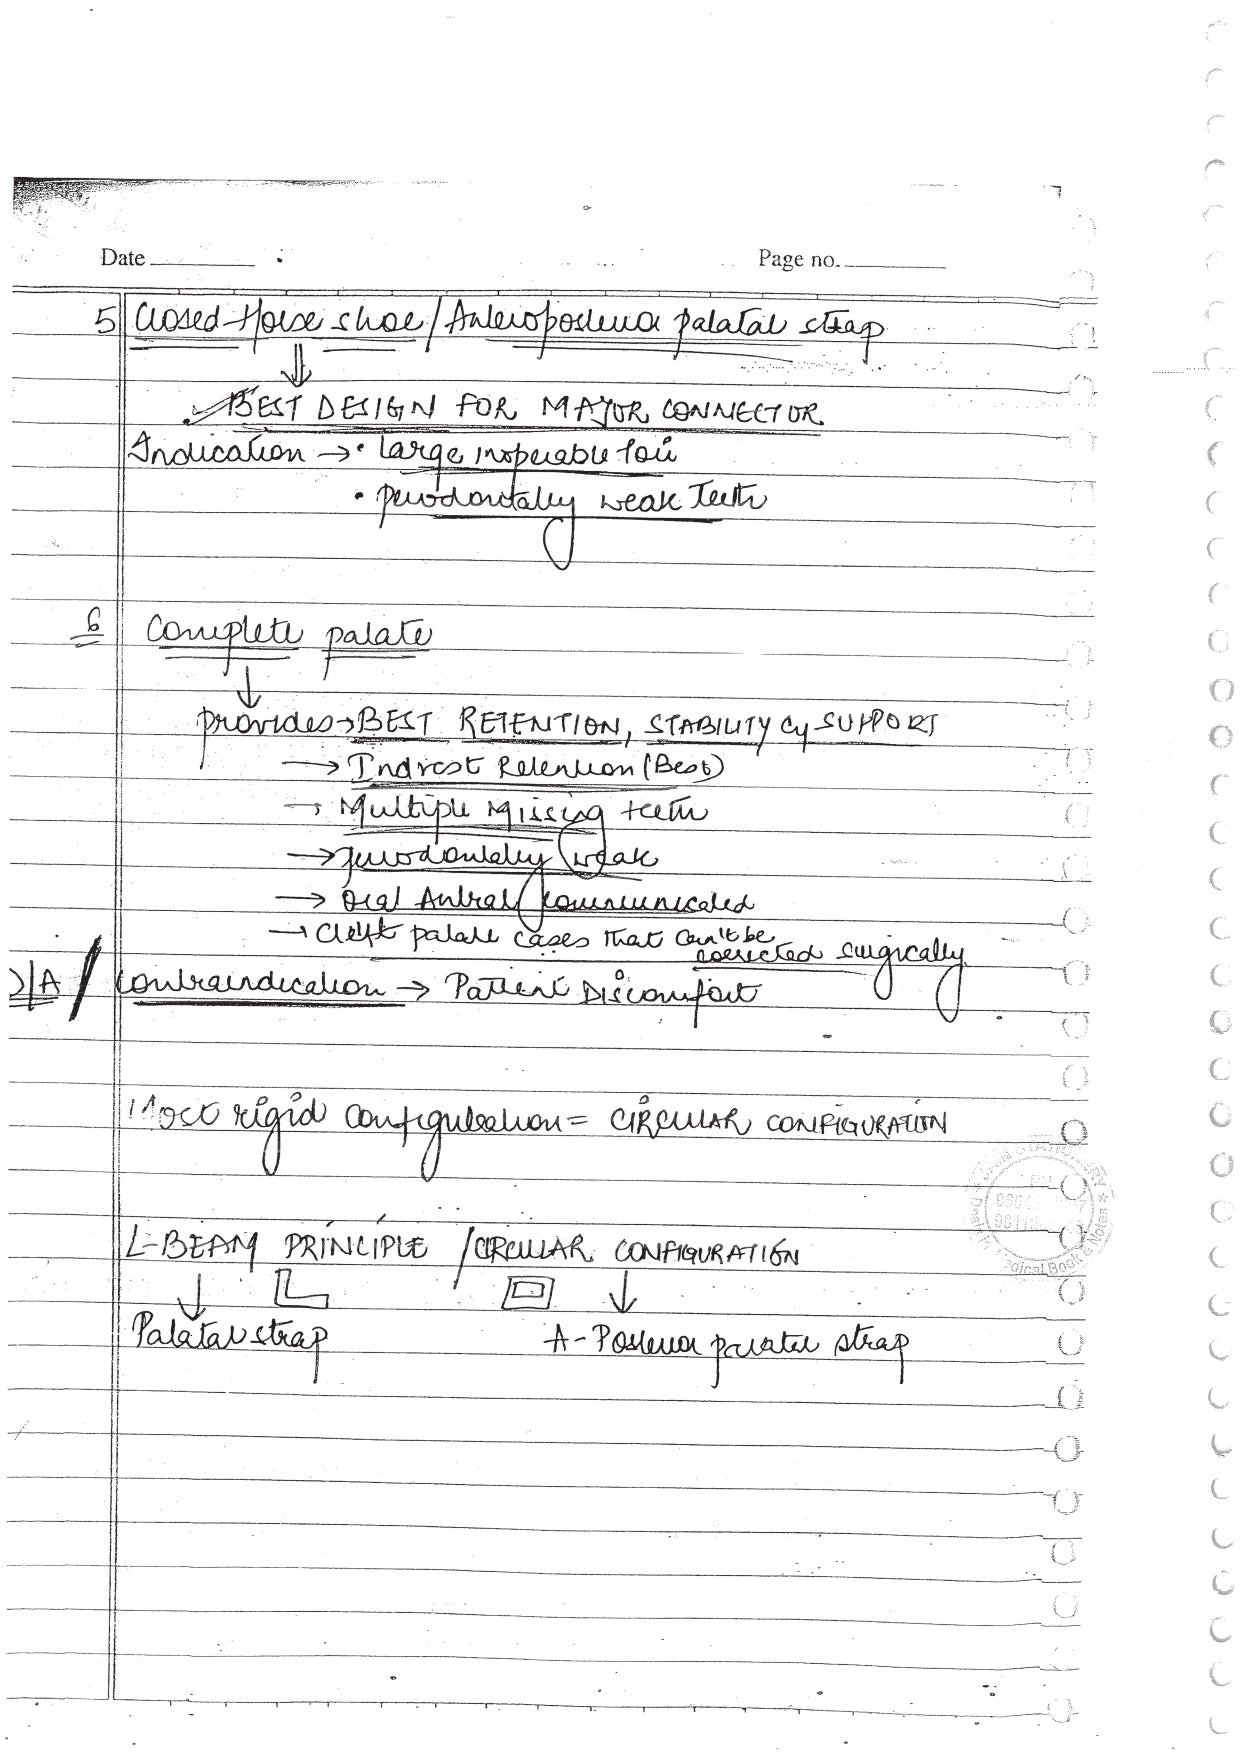 Date
Page no.
5 Closed Horse shoe / Anteroposterior palatal strap
BEST DESIGN FOR MAJOR CONNECTOR
Indication → • large inoperable tori
• periodontally weak Teeth
6 Complete palate
provides → BEST RETENTION, STABILITY & SUPPORT
→ Indirect Retention (Best)
→ Multiple Missing teeth
→ periodontally weak
→ Oral Antral communicated
→ Cleft palate cases that can't be
corrected surgically
D/A / Contraindication → Patient Discomfort
Most rigid configuration = CIRCULAR CONFIGURATION
L-BEAM PRINCIPLE / CIRCULAR CONFIGURATION
Palatal strap A-Posterior palatal strap